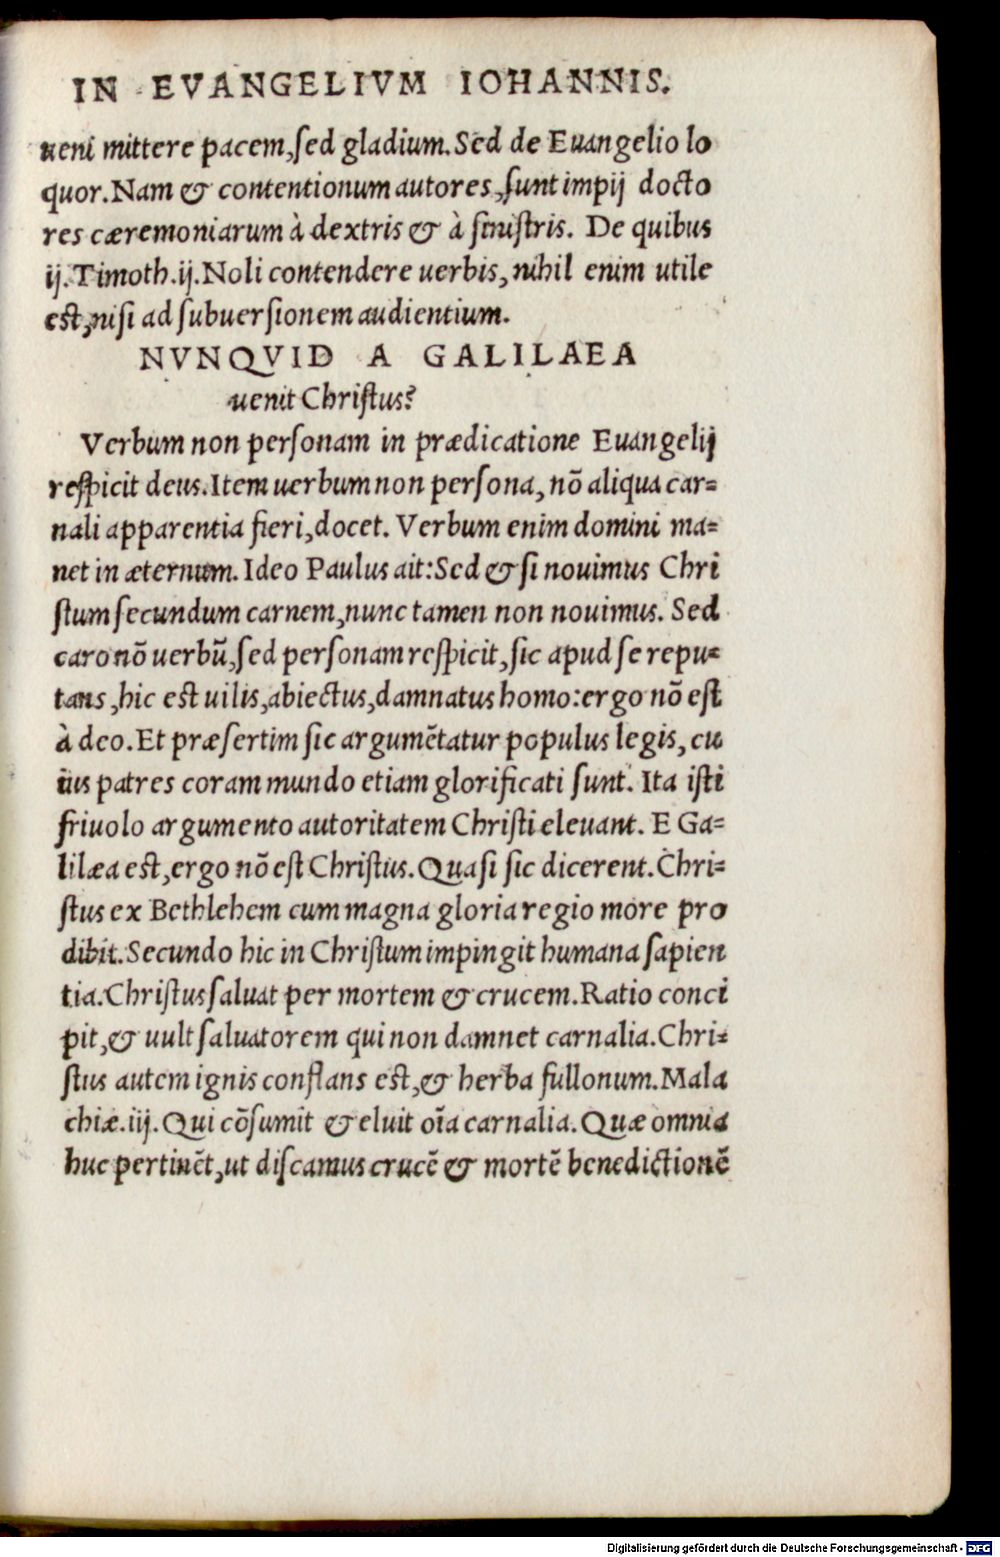 IN EVANGELIVM IOHANNIS.
ueni mittere pacem, sed gladium. Sed de Euangelio lo
quor. Nam & contentionum autores, sunt impij docto
res cæremoniarum à dextris & à sinistris. De quibus
ij. Timoth. ij. Noli contendere uerbis, nihil enim utile
est, nisi ad subuersionem audientium.
NVNQVID A GALILAEA
uenit Christus?
Verbum non personam in prædicatione Euangelij
respicit deus. Item uerbum non persona, nō aliqua car=
nali apparentia fieri, docet. Verbum enim domini ma=
net in æternum. Ideo Paulus ait: Sed & si nouimus Chri
stum secundum carnem, nunc tamen non nouimus. Sed
caro nō uerbū, sed personam respicit, sic apud se repu=
tans, hic est uilis, abiectus, damnatus homo: ergo nō est
à deo. Et præsertim sic argumētatur populus legis, cu
ius patres coram mundo etiam glorificati sunt. Ita isti
friuolo argumento autoritatem Christi eleuant. E Ga=
lilæa est, ergo nō est Christus. Quasi sic dicerent. Chri=
stus ex Bethlehem cum magna gloria regio more pro
dibit. Secundo hic in Christum impingit humana sapien
tia. Christus saluat per mortem & crucem. Ratio conci
pit, & uult saluatorem qui non damnet carnalia. Chri=
stus autem ignis conflans est, & herba fullonum. Mala
chiæ. iij. Qui cōsumit & eluit oīa carnalia. Quæ omnia
huc pertinēt, ut discamus crucē & mortē benedictionē
Digitalisierung gefördert durch die Deutsche Forschungsgemeinschaft - DFG